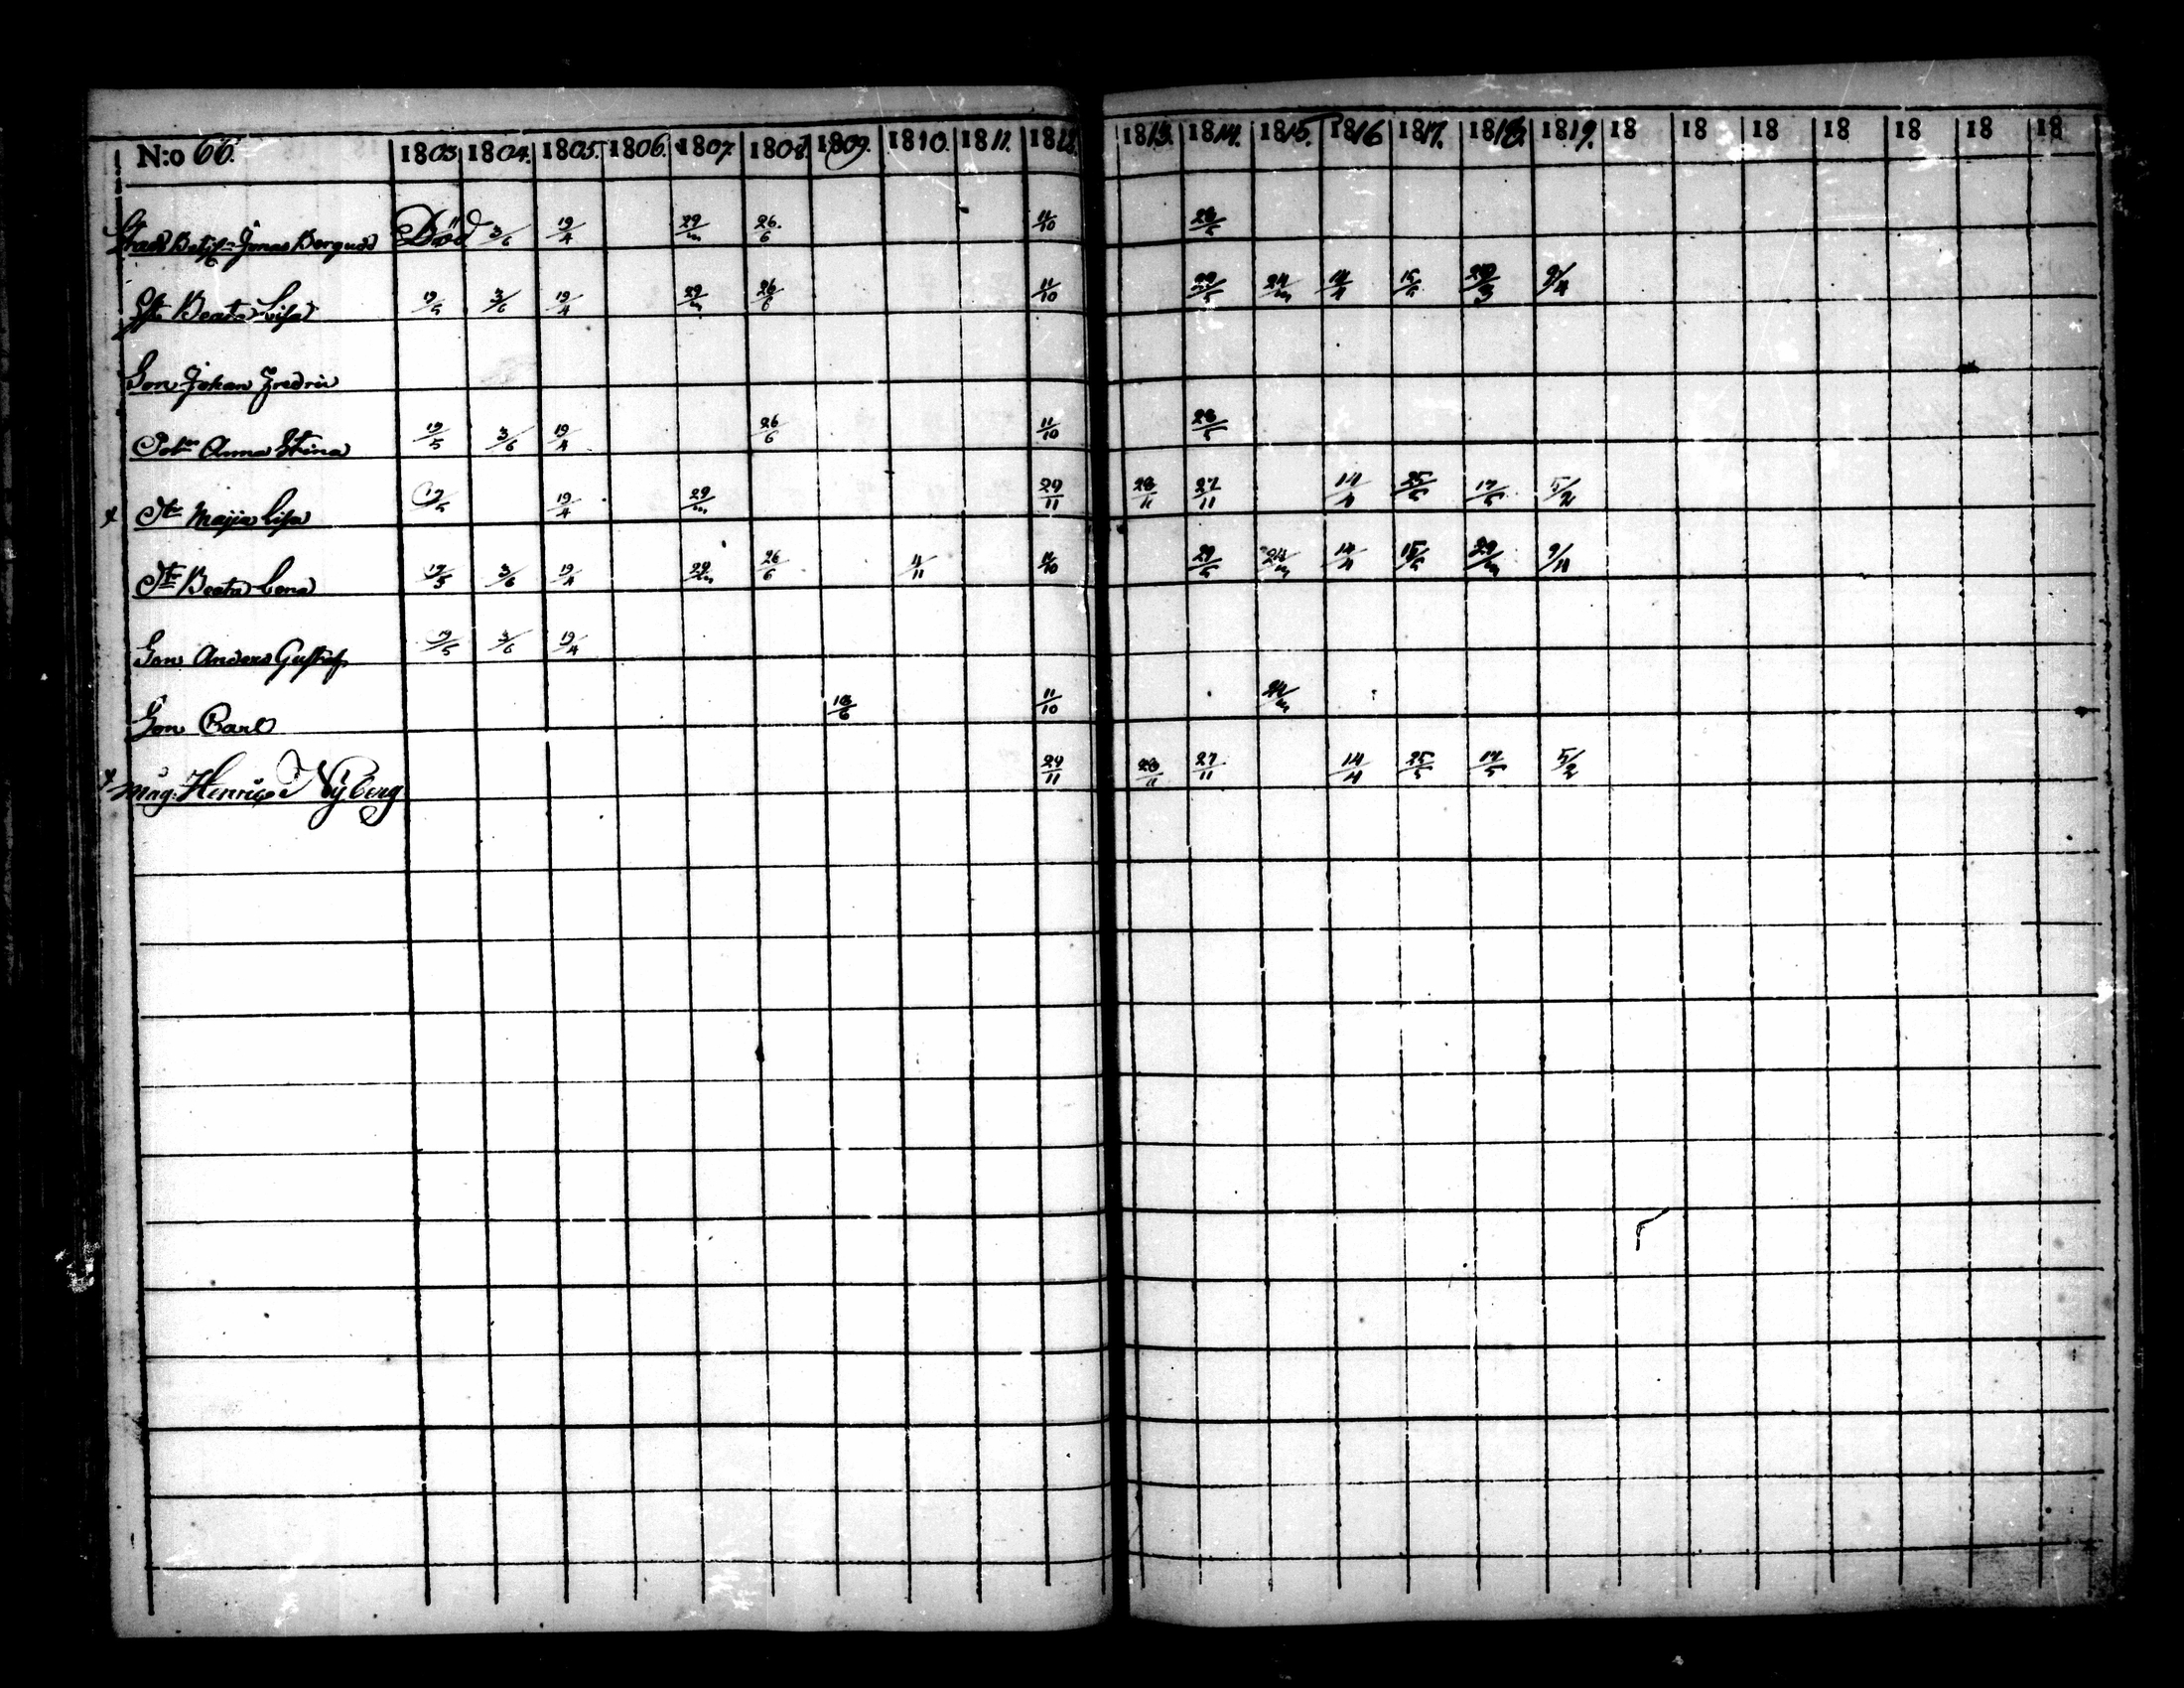 N:o 66. 1803 1804. 1805. 1806. 1807. 1808. 1809. 1810. 1811. 1812. 1813. 1814. 1815. 1816 1817. 1818. 1819. 18 18 18 18 18 18 18
Jonas Död 3/6 19/4 29/m 26/6 11/10 28/5
Beata Lisa 19/5 3/6 19/4 29/m 26/6 11/10 29/5 24/m 14/4 15/5 9/4
Son Johan Fredric
Anna Stina 19/5 3/6 19/4 26/6 11/10 28/5
Majia Lisa 19/5 19/4 29/m 29/11 28/11 27/11 14/4 25/5 17/5 5/2
Beata Lena 19/5 3/6 19/4 29/m 26/6 11/11 11/10 29/5 24/m 14/4 15/5 29/m 9/4
Son Anders Gustaf 19/5 3/6 19/4
Son Carl 18/6 11/10 24/m
Mag. Henric Nyberg 29/11 28/11 27/11 14/4 25/5 17/5 5/2